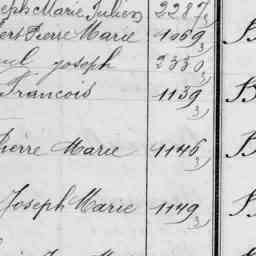 eph Marie Julien 2287/3
ert Pierre Marie 1069/3 B
ul joseph 2350/3
Francois 1139/3 B
Pierre Marie 1146/3 B
Joseph Marie 1149/3 B